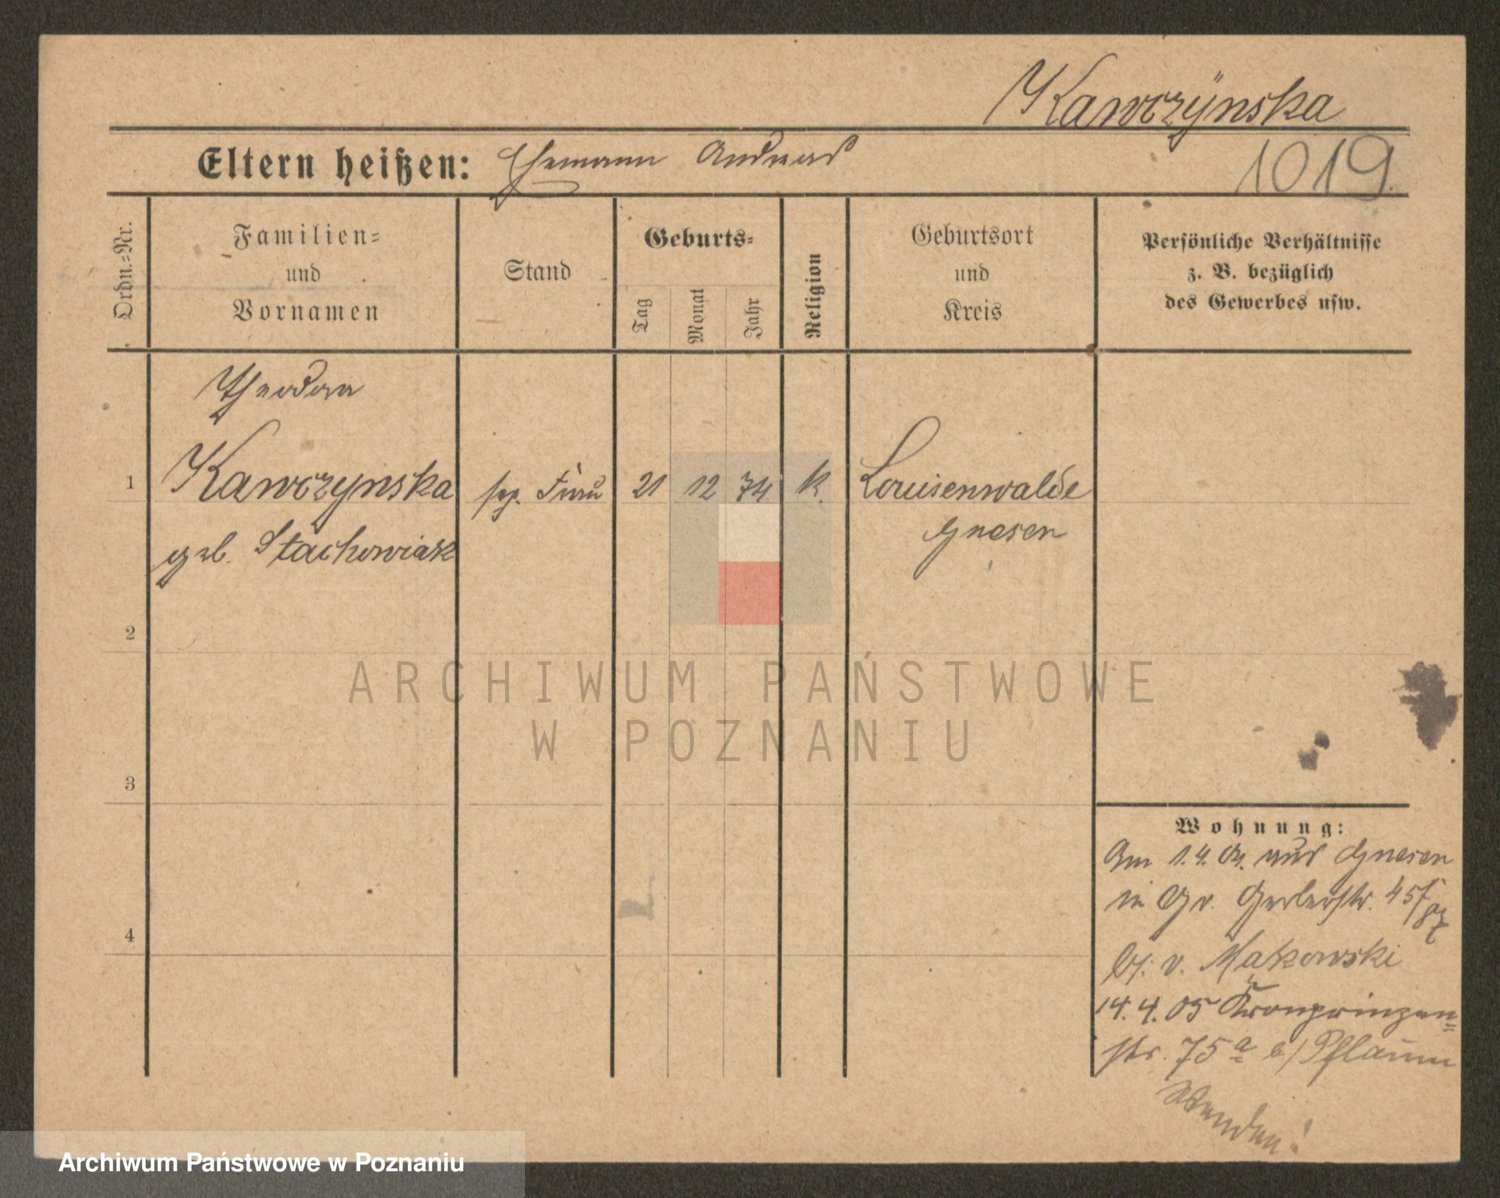 Kawczÿnska
Eltern heißen: Ehemann Andreas
1019.
Ordn.-Nr.
Familien-
und
Vornamen
Stand
Geburts-
Tag
Monat
Jahr
Religion
Geburtsort
und
Kreis
Persönliche Verhältnisse
z. B. bezüglich
des Gewerbes usw.
Theodora
1 Kawczynska sep. Frau 21 12 74 k. Louisenwalde
geb. Stachowiak Gnesen
2
3
4
Wohnung:
Am 1.4.04. aus Gnesen
in Gr. Gerberstr. 45
b/. v. Makowski
14.4.05 Kronprinzen-
str. 75a b/ Pflaum
Wenden!
ARCHIWUM PAŃSTWOWE
W POZNANIU
Archiwum Państwowe w Poznaniu